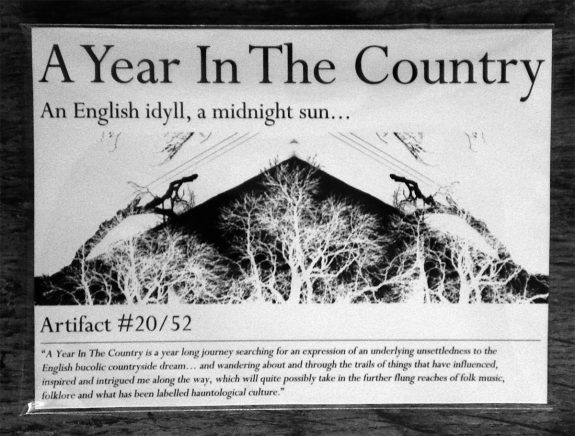 A Year In The Country
An English idyll, a midnight sun...
Artifact #20/52
“A Year In The Country is a year long journey searching for an expression of an underlying unsettledness to the
English bucolic countryside dream... and wandering about and through the trails of things that have influenced,
inspired and intrigued me along the way, which will quite possibly take in the further flung reaches of folk music,
folklore and what has been labelled hauntological culture.”